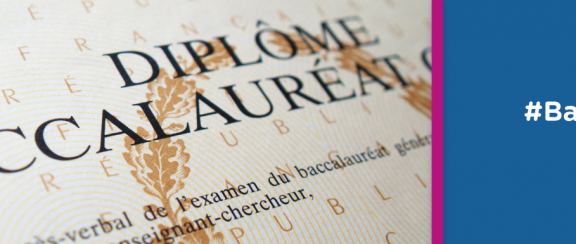 DIPLÔME
CCALAURÉAT
ès-verbal de l'examen du baccalauréat génér
nseignant-chercheur,
#Ba